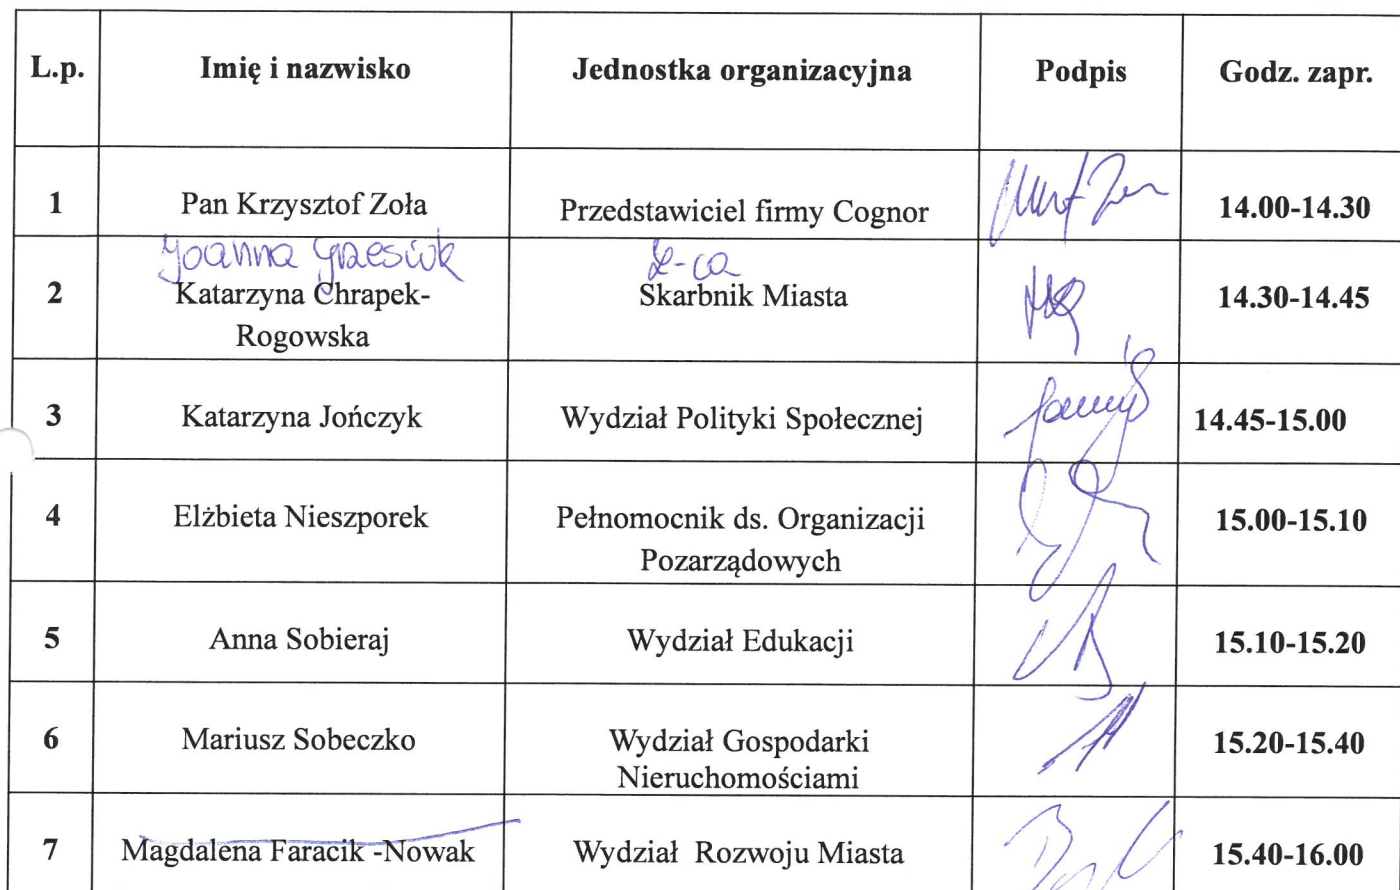 L.p. Imię i nazwisko Jednostka organizacyjna Podpis Godz. zapr.
1 Pan Krzysztof Zoła Przedstawiciel firmy Cognor 14.00-14.30
Joanna Grzesiuk Z-ca
2 Katarzyna Chrapek- Skarbnik Miasta 14.30-14.45
Rogowska
3 Katarzyna Jończyk Wydział Polityki Społecznej 14.45-15.00
4 Elżbieta Nieszporek Pełnomocnik ds. Organizacji 15.00-15.10
Pozarządowych
5 Anna Sobieraj Wydział Edukacji 15.10-15.20
6 Mariusz Sobeczko Wydział Gospodarki 15.20-15.40
Nieruchomościami
7 Magdalena Faracik -Nowak Wydział Rozwoju Miasta 15.40-16.00